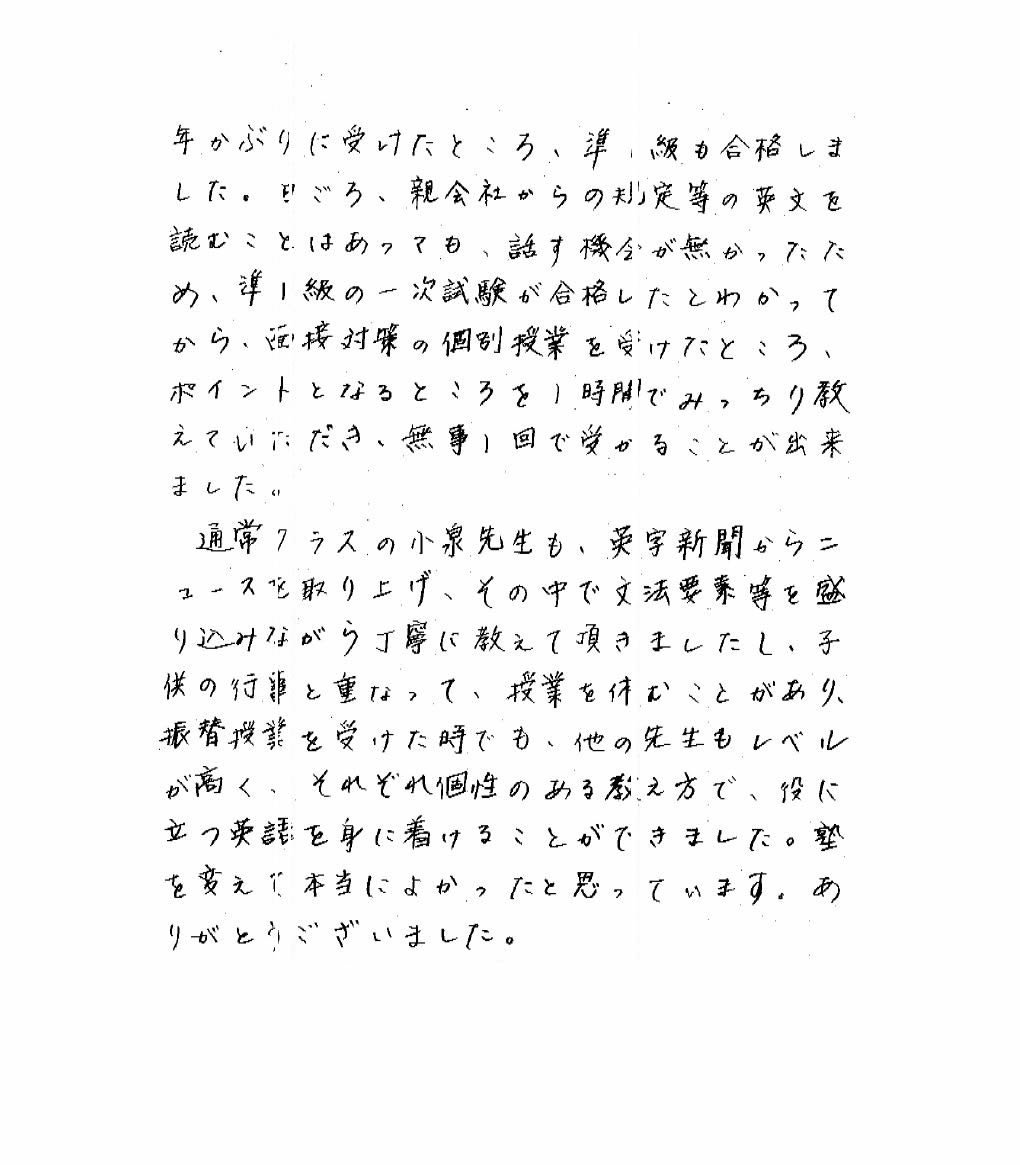 年かぶりに受けたところ、準1級も合格しま
した。日ごろ、親会社からの規定等の英文を
読むことはあっても、話す機会が無かったた
め、準1級の一次試験が合格したとわかって
から、面接対策の個別授業を受けたところ、
ポイントとなるところを1時間でみっちり教
えていただき、無事1回で受かることが出来
ました。
通常クラスの小泉先生も、英字新聞からニ
ュースを取り上げ、その中で文法要素等を盛
り込みながら丁寧に教えて頂きましたし、子
供の行事と重なって、授業を休むことがあり、
振替授業を受けた時でも、他の先生もレベル
が高く、それぞれ個性のある教え方で、役に
立つ英語を身に着けることができました。塾
を変えて本当によかったと思っています。あ
りがとうございました。